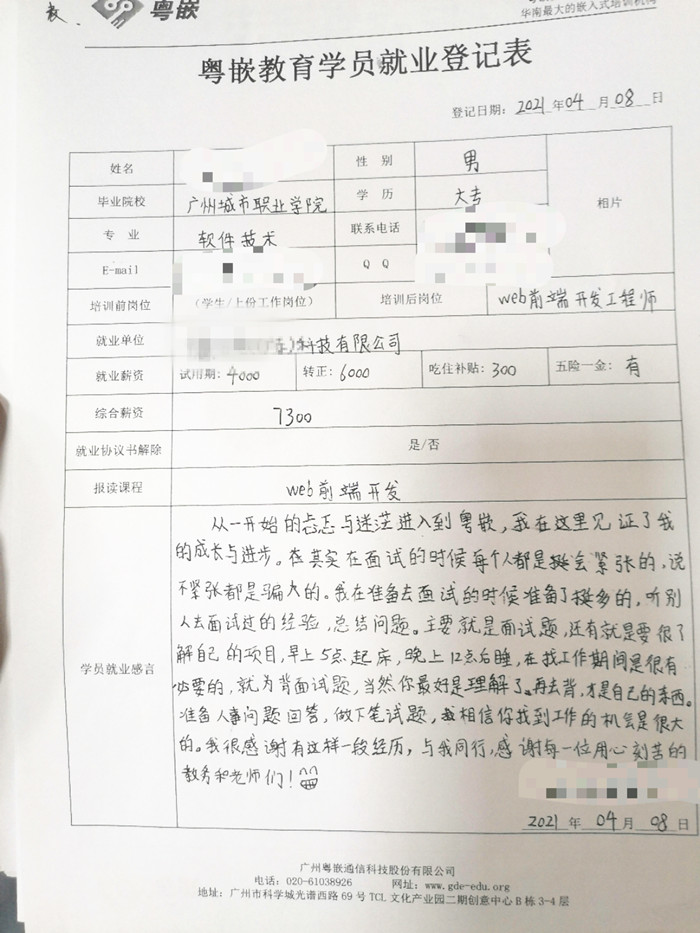 教、
粤嵌
华南最大的嵌入式培训机构
粤嵌教育学员就业登记表
登记日期：2021 年 04 月 08 日
姓名 性 别 男
毕业院校 广州城市职业学院 学 历 大专 相片
专 业 软件技术 联系电话
E-mail Q Q
培训前岗位 （学生/上份工作岗位） 培训后岗位 web前端开发工程师
就业单位 科技有限公司
就业薪资 试用期：4000 转正：6000 吃住补贴：300 五险一金：有
综合薪资 7300
就业协议书解除 是/否
报读课程 web前端开发
学员就业感言
从一开始的忐忑与迷茫进入到粤嵌，我在这里见证了我
的成长与进步。在其实在面试的时候每个人都是挺会紧张的，说
不紧张都是骗大的。我在准备去面试的时候准备了挺多的，听别
人去面试过的经验，总结问题。主要就是面试题，还有就是要很了
解自己的项目，早上5点起床，晚上12点后睡，在找工作期间是很有
必要的，就为背面试题，当然你最好是理解了。再去背，才是自己的东西。
准备人事问题回答，做下笔试题，我相信你找到工作的机会是很大
的。我很感谢有这样一段经历，与我同行，感谢每一位用心刻苦的
教务和老师们！
2021 年 04 月 08 日
广州粤嵌通信科技股份有限公司
电话：020-61038926 网址：www.gde-edu.org
地址：广州市科学城光谱西路69号TCL文化产业园二期创意中心B栋3-4层